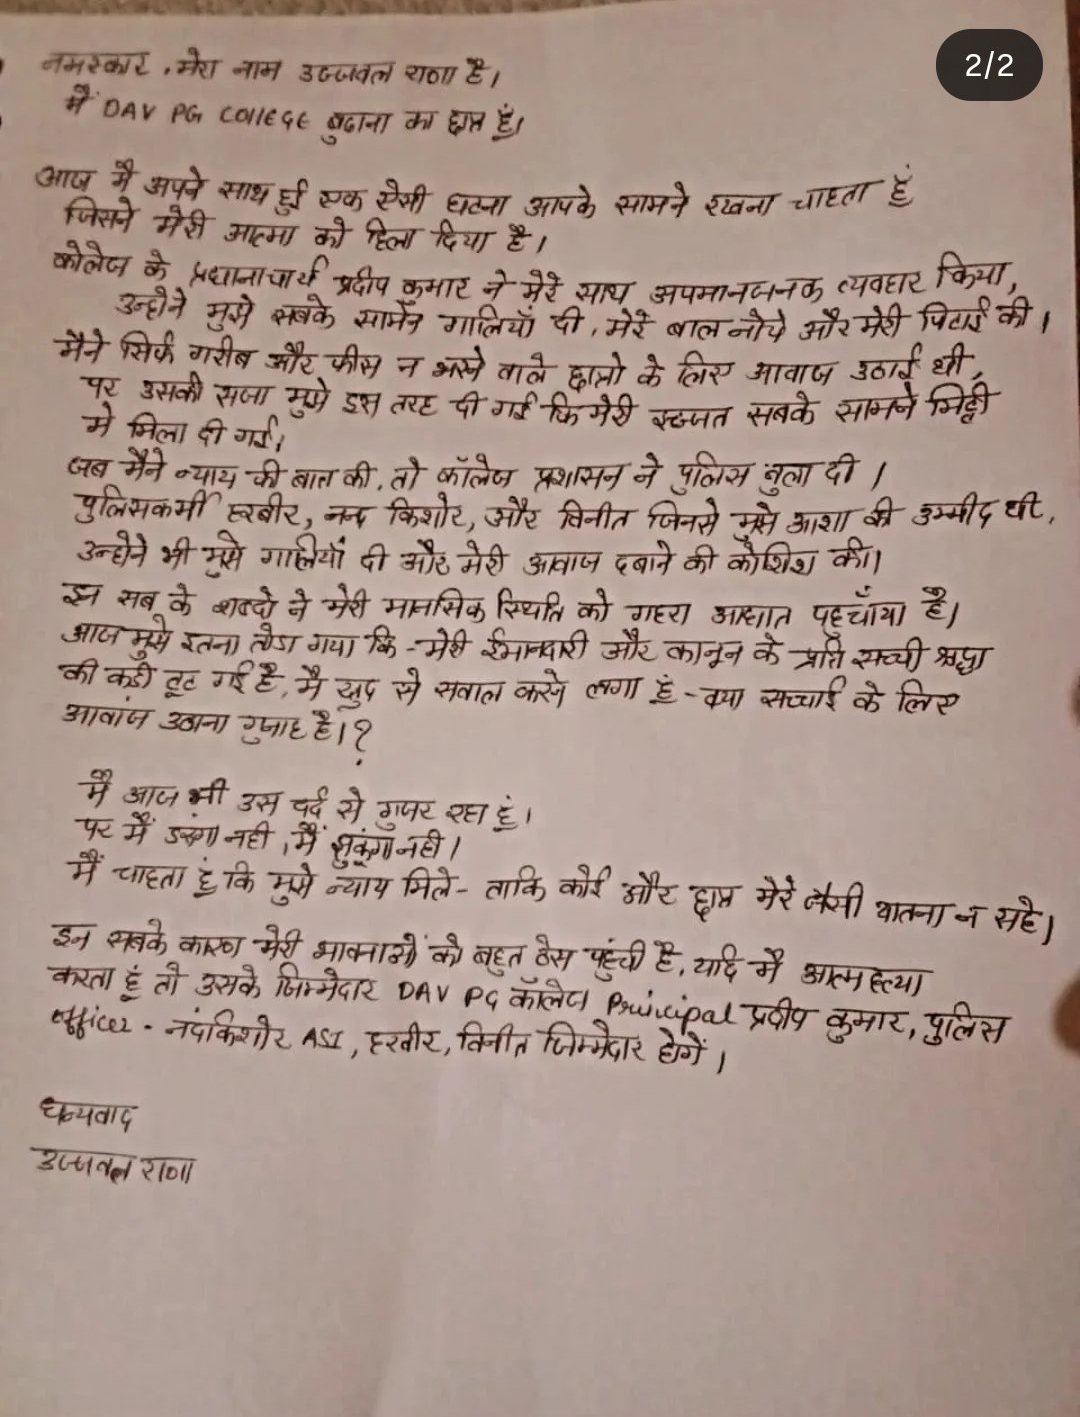 2/2
नमस्कार, मेरा नाम उज्जवल राणा है।
मैं DAV PG COllEGE बुढाना का छात्र हूं।
आज मै अपने साथ हुई एक ऐसी घटना आपके सामने रखना चाहता हूँ
जिसने मेरी आत्मा को हिला दिया है।
कोलेज के प्रधानाचार्य प्रदीप कुमार ने मेरे साथ अपमानजनक व्यवहार किया,
उन्होने मुझे सबके सामने गालियाँ दी, मेरे बाल नोचे और मेरी पिटाई की।
मैने सिर्फ गरीब और फीस न भरने वाले छात्रो के लिए आवाज उठाई थी,
पर उसकी सजा मुझे इस तरह दी गई कि मेरी इज्जत सबके सामने मिट्टी
मे मिला दी गई।
जब मैने न्याय की बात की, तो कॉलेज प्रशासन ने पुलिस बुला दी।
पुलिसकर्मी हरबीर, नन्द किशोर, और विनीत जिनसे मुझे आशा की उम्मीद थी,
उन्होने भी मुझे गालियाँ दी और मेरी आवाज दबाने की कोशिश की।
इन सब के शब्दो ने मेरी मानसिक स्थिति को गहरा आघात पहुचाँया है।
आज मुझे इतना तोडा गया कि - मेरी ईमानदारी और कानून के प्रति सच्ची श्रद्धा
की कडी टूट गई है, मै खुद से सवाल करने लगा हूं - क्या सच्चाई के लिए
आवाज उठाना गुनाह है।?
मै आज भी उस दर्द से गुजर रहा हूं।
पर मैं डरुंगा नही, मैं झुकूंगा नही।
मैं चाहता हूं कि मुझे न्याय मिले - ताकि कोई और छात्र मेरे जैसी यातना न सहे।
इन सबके कारण मेरी भावनाओं को बहुत ठेस पहुंची है, यदि मै आत्महत्या
करता हूं तो उसके जिम्मेदार DAV PG कॉलेज Principal प्रदीप कुमार, पुलिस
officer - नंदकिशोर ASI, हरवीर, विनीत जिम्मेदार होगें।
धन्यवाद
उज्जवल राणा